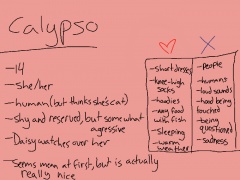 Calypso
-14
-she/her
-human(but thinks she's cat)
-shy and reserved, but somewhat
agressive
-Daisy watches over her
-Seems mean at first, but is actually
really nice
-short dresses
-knee-high
socks
-hoodies
-any food
with fish
-sleeping
-warm
weather
X
-people
-humans
-loud sounds
-head being
touched
-being
questioned
-sadness